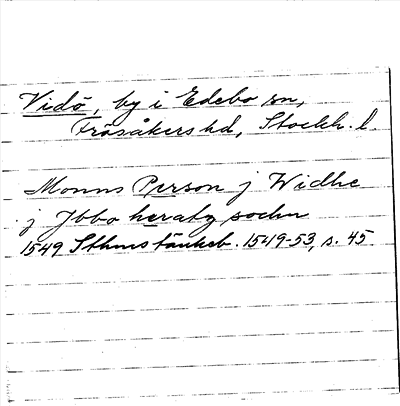 Vidö, by i Edebo sn,
Frösåkers hd, Stockh. l.
Monns Person j Widhe
j Jbbo heraby sochn
1549 Sthms tänkeb. 1549-53, s. 45.